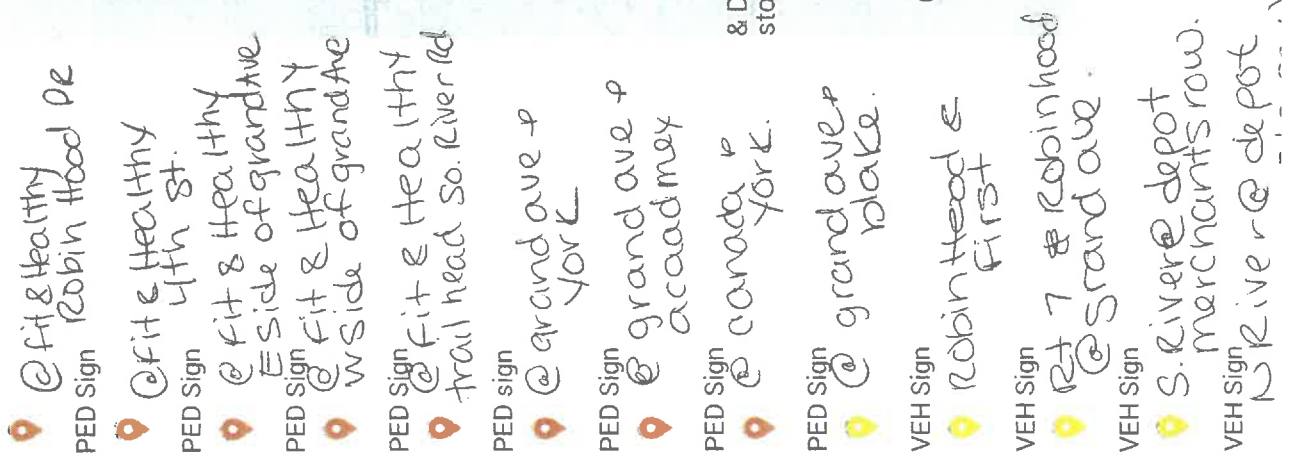 @ fit & Healthy
Robin Hood DR
PED Sign
@ Fit & Healthy
4th St.
PED Sign
@ Fit & Healthy
E Side of grand Ave
PED Sign
@ Fit & Healthy
W Side of grand Ave
PED Sign
@ Fit & Healthy
trail head So. River Rd
PED sign
@ grand ave &
York
PED Sign
@ grand ave &
acaadmey
PED Sign
@ canada &
York.
PED Sign
@ grand ave &
blake.
VEH Sign
Robin Hood &
First
VEH Sign
Rt 7 & Robinhood
@ Grand ave
VEH Sign
S. River @ depot
merchants row.
VEH Sign
River @ depot
& D
sto